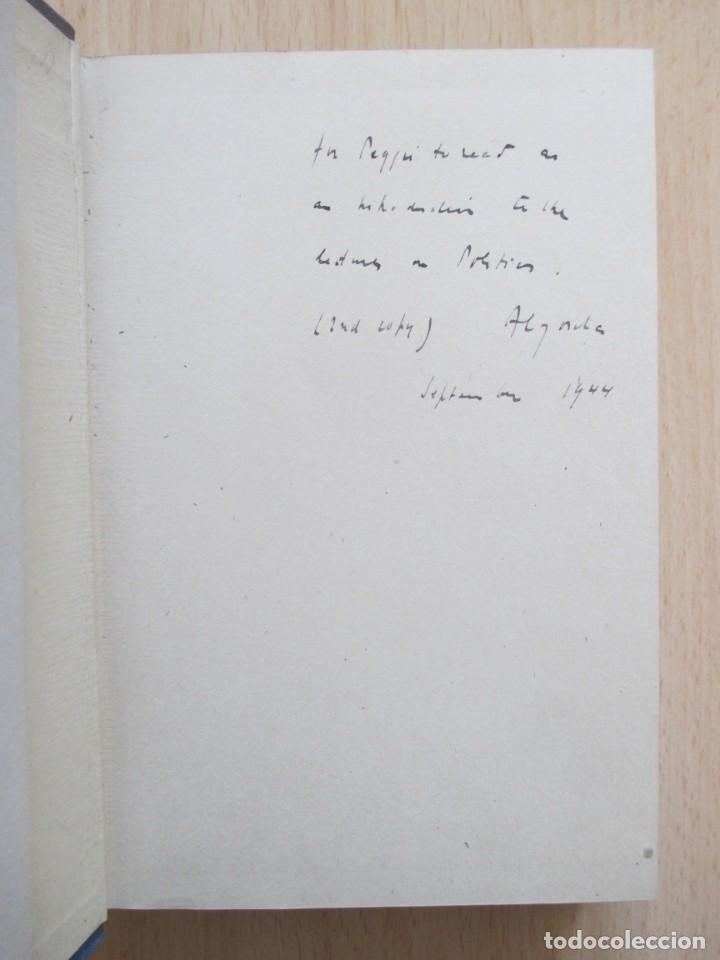 for Peggie to read as
an introduction to the
lectures on Politics.
(2nd copy)
September 1944
todocoleccion
todocoleccion.net